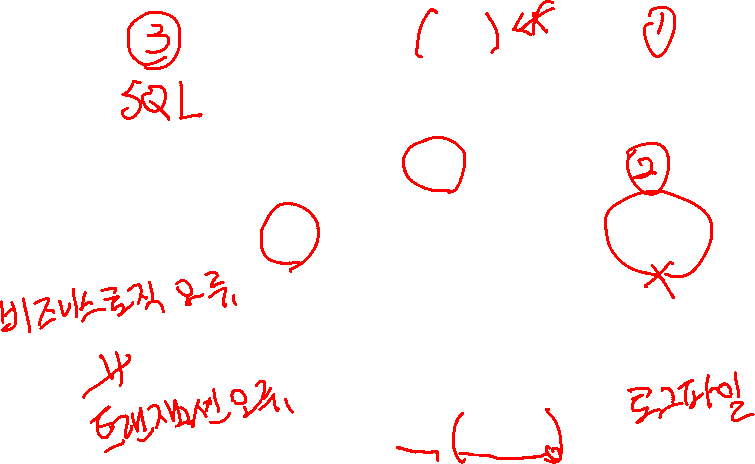 ③
①
SQL
②
비즈니스로직 오류,
트랜잭션 오류,
로그파일